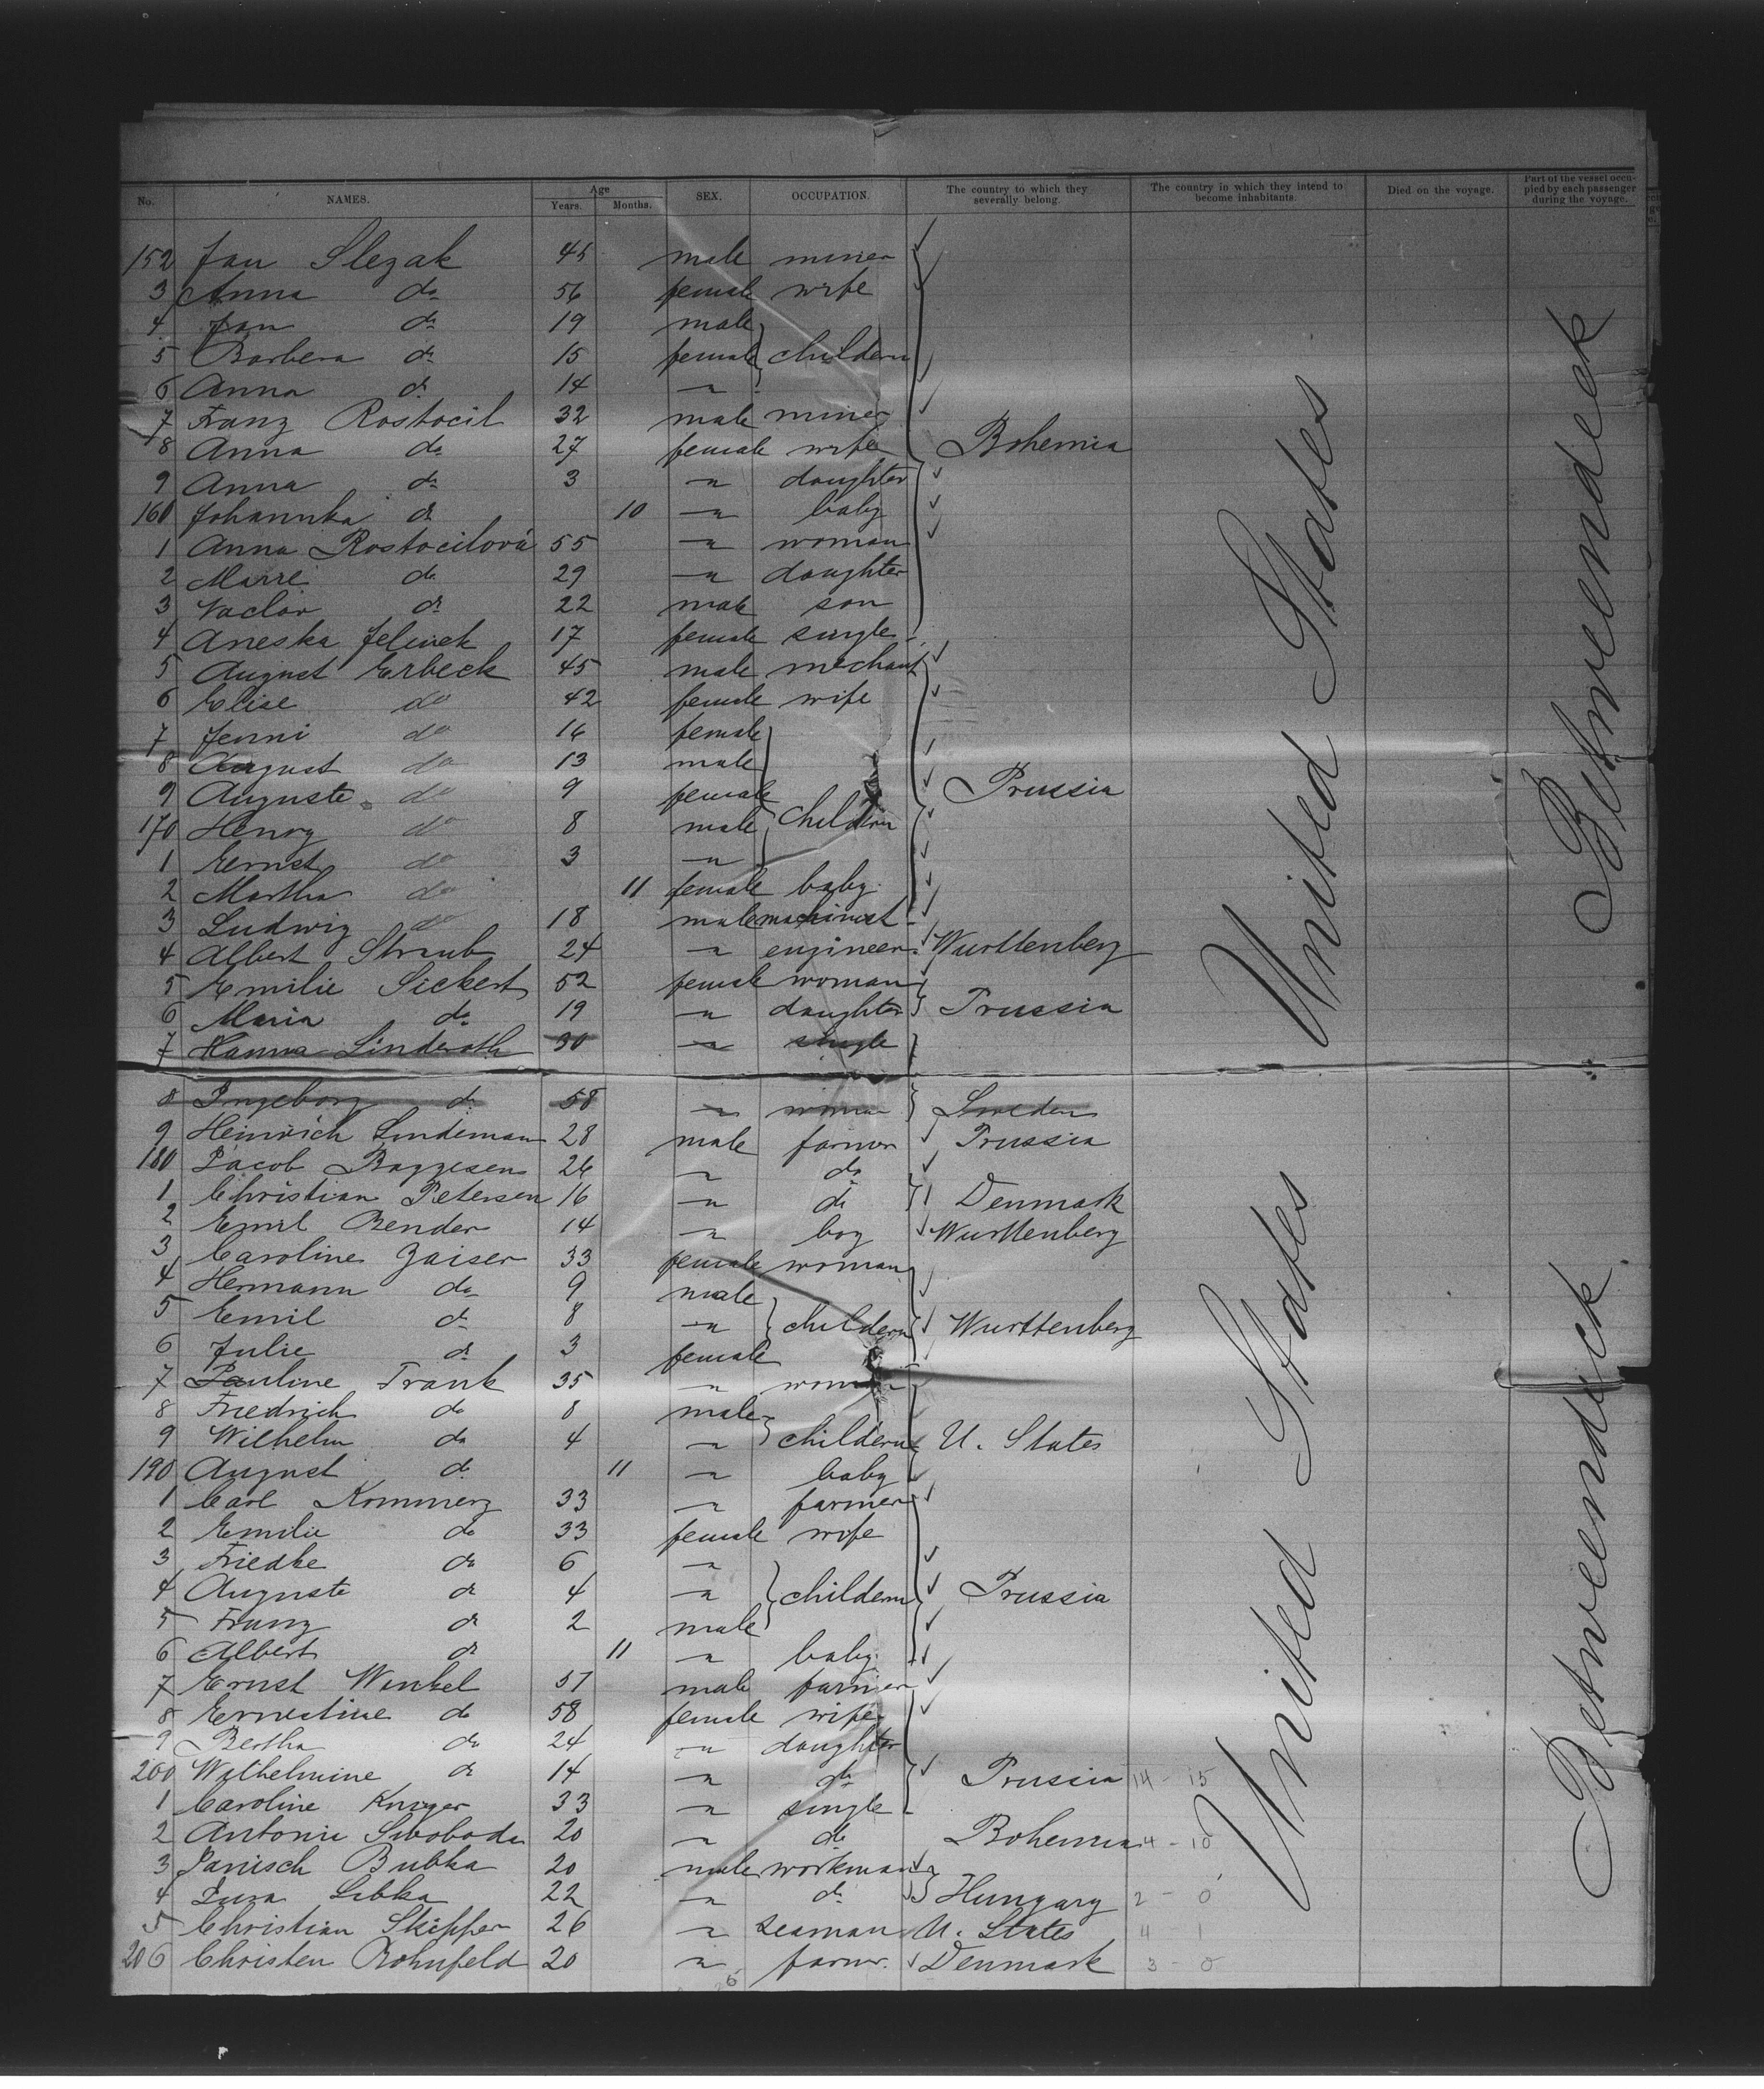 No. NAMES. Age Years. Months. SEX. OCCUPATION. The country to which they severally belong. The country in which they intend to become inhabitants. Died on the voyage. Part of the vessel occupied by each passenger during the voyage.
152 Jan Slezak 45 male miner
3 Anna do 56 female wife
4 Jan do 19 male
5 Barbera do 15 female childern
6 Anna do 14 "
7 Franz Rostocil 32 male miner
8 Anna do 27 female wife Bohemia
9 Anna do 3 " daughter
160 Johannka do 10 " baby
1 Anna Rostocilová 55 " woman
2 Marie do 29 " daughter
3 Vaclav do 22 male son
4 Aneska Jelinek 17 female single
5 August Erbeck 45 male mechant
6 Elise do 42 female wife
7 Jenni do 16 female
8 August do 13 male
9 Auguste do 9 female Prussia
170 Henry do 8 male children
1 Ernst do 3 "
2 Martha do 11 female baby
3 Ludwig do 18 male machinist
4 Albert Straub 24 " engineer Wurttenberg
5 Emilie Sickert 52 female woman
6 Maria do 19 " daughter Prussia
7 Hanna Linderoth 30 " single
8 Ingeborg do 58 " woman Sweden
9 Heinrich Lindeman 28 male farmer Prussia
180 Jacob Baggesen 26 " do
1 Christian Petersen 16 " do Denmark
2 Emil Bender 14 " boy Wurttenberg
3 Caroline Zaiser 33 female woman
4 Hermann do 9 male
5 Emil do 8 " childern Wurttenberg
6 Julie do 3 female
7 Pauline Frank 35 " woman
8 Friedrich do 8 male
9 Wilhelm do 4 " childern U. States
190 August do 11 " baby
1 Carl Kommerz 33 " farmer
2 Emilie do 33 female wife
3 Friedke do 6 "
4 Auguste do 4 " childern Prussia
5 Franz do 2 male
6 Albert do 11 " baby
7 Ernst Winkel 57 male farmer
8 Ernestine do 58 female wife
9 Bertha do 24 " daughter
200 Wilhelmine do 14 " do Prussia 14 - 15
1 Caroline Kruger 33 " single
2 Antonie Swoboda 20 " do Bohemia 4 - 10
3 Janisch Bubka 20 male workman
4 Libka 22 " do Hungary 2 - 0
5 Christian Skipper 26 " seaman U. States 4 1
206 Christen Bohnfeld 20 " farmr. Denmark 3 - 0
United States
United States
Betweendeck
Betweendeck